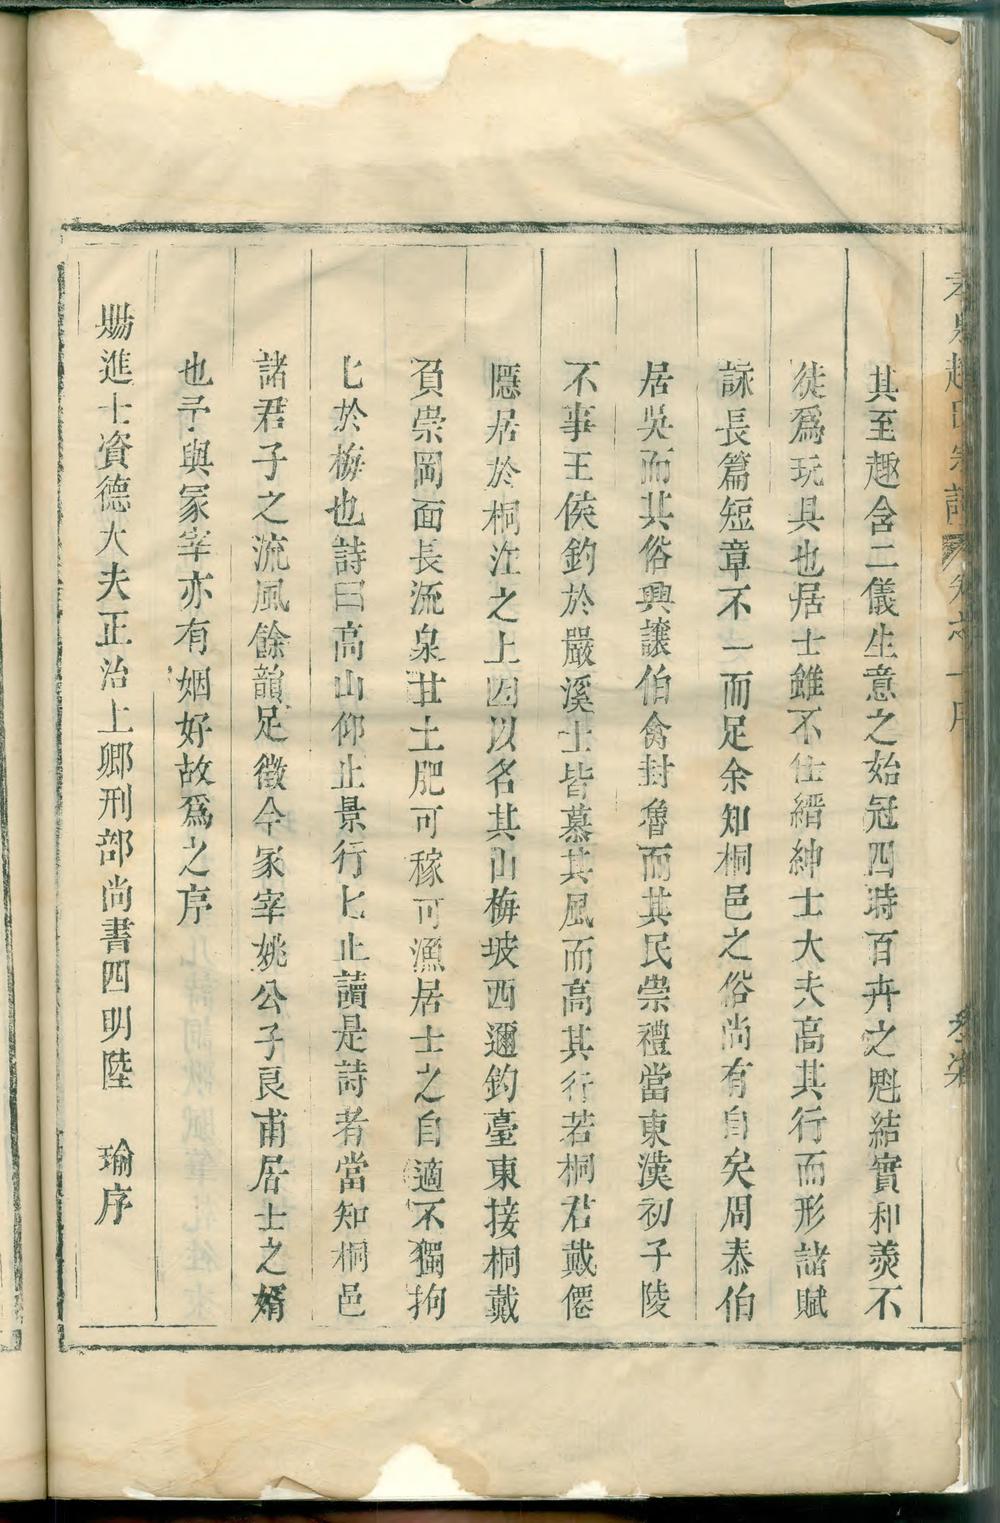 趙氏宗譜 卷之 序
其至趣含二儀生意之始冠四時百卉之魁結實和羮不
徒爲玩具也居士雖不仕縉紳士大夫高其行而形諸賦
詠長篇短章不一而足余知桐邑之俗尚有自矣周泰伯
居吳而其俗興讓伯禽封魯而其民崇禮當東漢初子陵
不事王侯釣於嚴溪士皆慕其風而高其行若桐君戴僊
隱居於桐江之上因以名其山梅坡西邇釣臺東接桐戴
負崇岡面長流泉甘土肥可稼可漁居士之自適不獨拘
匕於梅也詩曰高山仰止景行匕止讀是詩者當知桐邑
諸君子之流風餘韻足徵今冢宰姚公子良甫居士之婿
也予與冢宰亦有姻好故爲之序
賜進士資德大夫正治上卿刑部尚書四明陸 瑜序